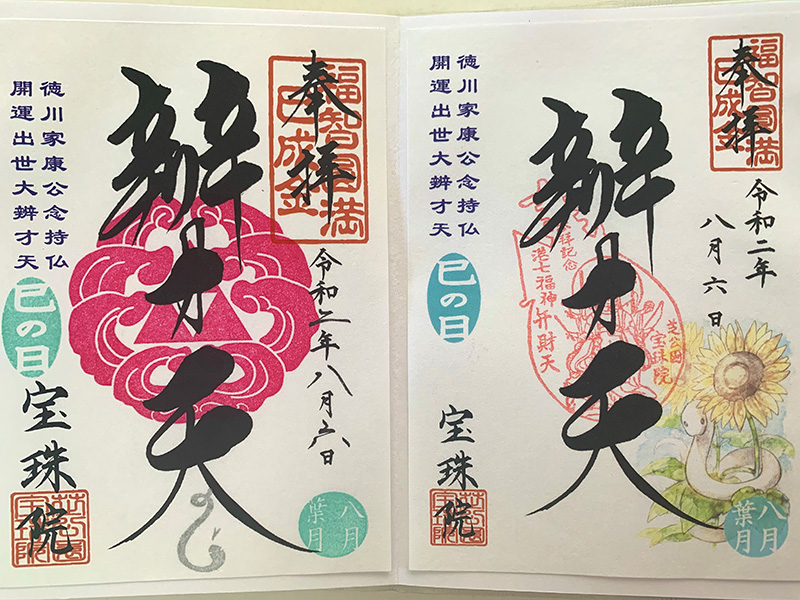 奉拝
福智圓満
巳成金
令和二年八月六日
辨才天
徳川家康公念持仏
開運出世大辨才天
巳の日
宝珠院
八月
葉月
奉拝
福智圓満
巳成金
令和二年
八月六日
辨才天
参拝記念
港七福神弁財天
芝公園
宝珠院
徳川家康公念持仏
開運出世大辨才天
巳の日
宝珠院
八月
葉月